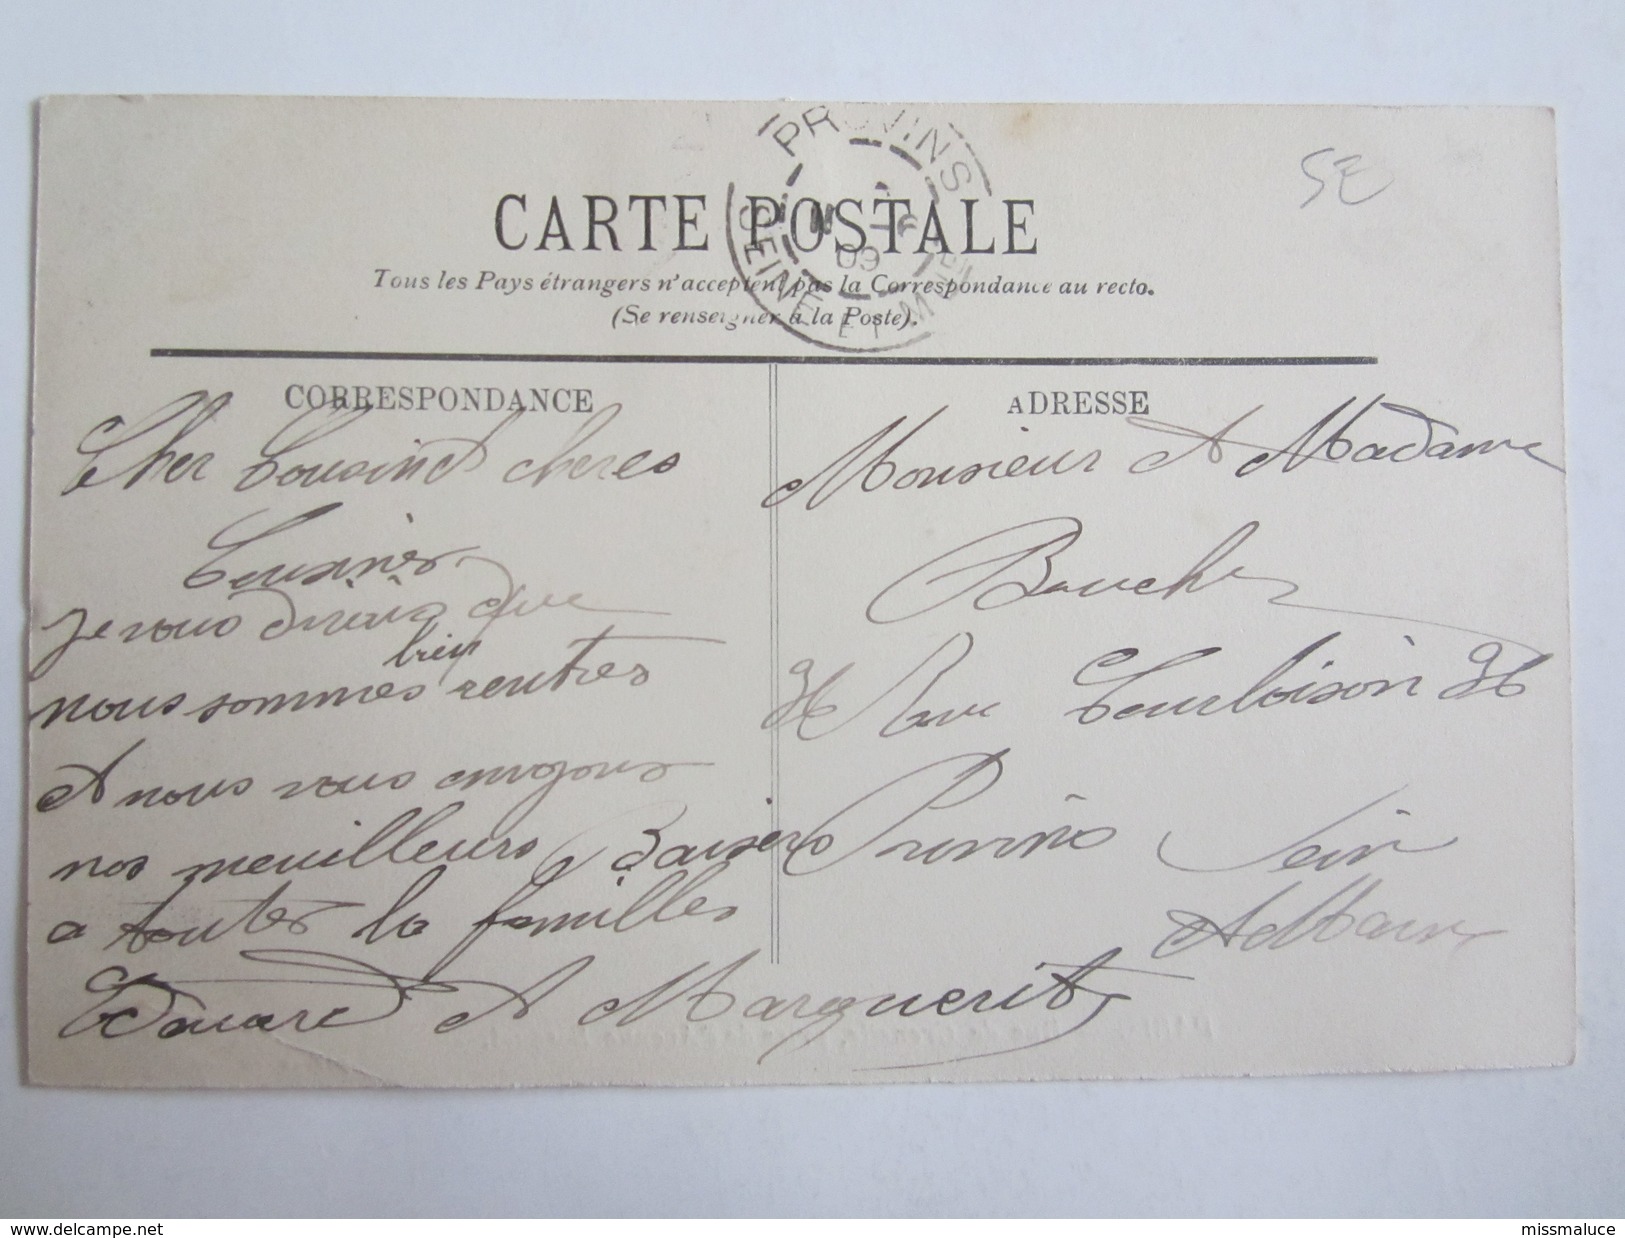 PROVINS
SEINE ET M
09
5E
CARTE POSTALE
Tous les Pays étrangers n'acceptent pas la Correspondance au recto.
(Se renseigner à la Poste).
CORRESPONDANCE
Cher Cousin et cheres
Cousines
je vous dirais que
bien
nous sommes rentres
et nous vous envoyons
nos meuilleurs Baisers
a toutes la familles
Edouard et Marguerite
ADRESSE
Monsieur et Madame
Bouche
36 Rue Courloison 36
Provins Sein
et Marne
www.delcampe.net
missmaluce